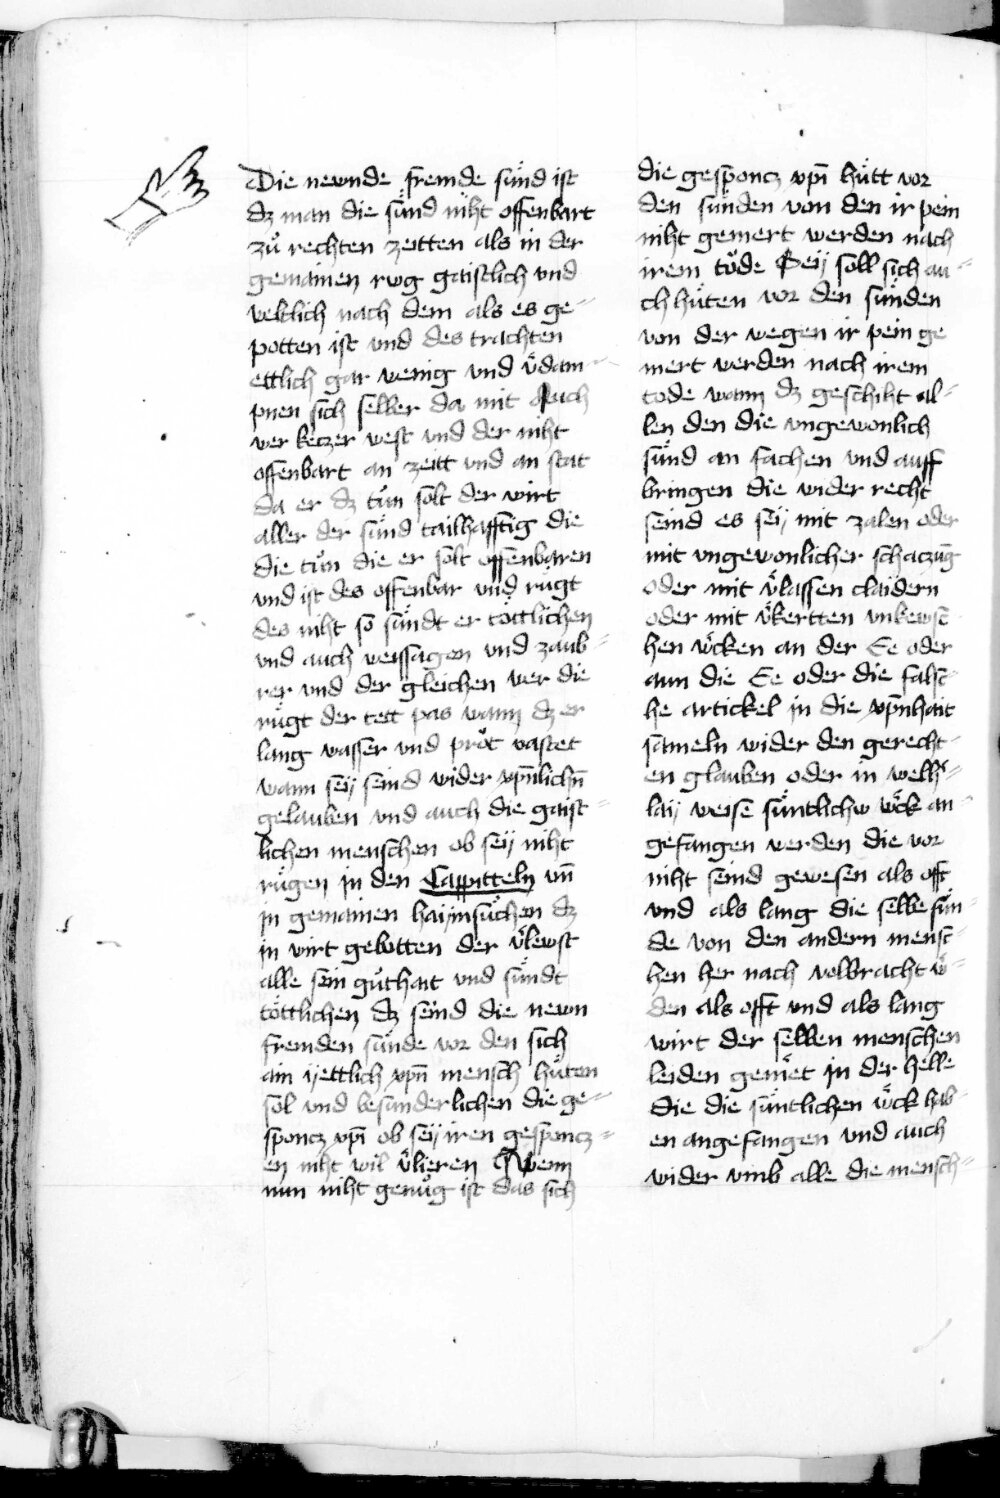 Die newnde fremde sünd ist
dz man die sünd niht offenbart
zů rechten zeitten als in der
gemainen rüg gaistlich vnd
weltlich nach dem als es ge-
potten ist vnd des trachten
ettlich gar wenig vnd v̈dam-
pnen sich selber da mit Auch
wer keczer west vnd der niht
offenbart an zeitt vnd an stat
da er dz tůn solt der wirt
aller der sünd tailhafftig die
die tůn die er solt offenbaren
vnd ist des offenbar vnd rügt
des niht so sündt er töttlichen
vnd auch weissagen vnd zaub-
rer vnd der gleichen wer die
rügt der tett pas wann dz er
lang wasser vnd pröt vastet
wann seÿ seind wider xpn̄lichn̄
gelauben vnd auch die gaist-
lichen menschen ob seÿ niht
rügen in den Cappitteln vn̄
in gemainen haÿmsůchen dz
in wirt gebotten der v̈lewst
alle sein gůthait vnd sündt
töttlichen dz seind die newn
fremden sünde vor den sich
ain ÿettlich xpn̄ mensch hüten
sol vnd besunderlichen die ge-
sponcz xp̄i ob seÿ iren gesponcz-
en niht wil v̈lieren Wenn
nun niht genůg ist das sich
die gesponcz xp̄i hütt vor
den sünden von den ir pein
niht gemert werden nach
irem töde Seÿ soll sich au-
ch hüten vor den sünden
von der wegen ir pein ge
mert werden nach irem
tode wann dz geschiht al-
len den die vngewonlich
sünd an fachen vnd auff
bringen die wider recht
seind es seÿ mit zalen oder
mit vngewonlicher schaczūg
oder mit v̈lassen claidern
oder mit v̈kertten vnkewsc
hen ẅcken an der Ee oder
aun die Ee oder die falsc
he artickel in die xpn̄hait
sameln wider den gerecht-
en glauben oder in welh̕-
laÿ weise süntlichw ẅck an-
gefangen werden die vor
niht seind gewesen als offt
vnd als lang die selbe sün-
de von den andern mensc-
hen her nach volbracht ẅ-
den als offt vnd als lang
wirt der selben menschen
leiden gemet in der helle
die die süntlichen ẅck hab-
en angefangen vnd auch
wider vmb alle die mensch-